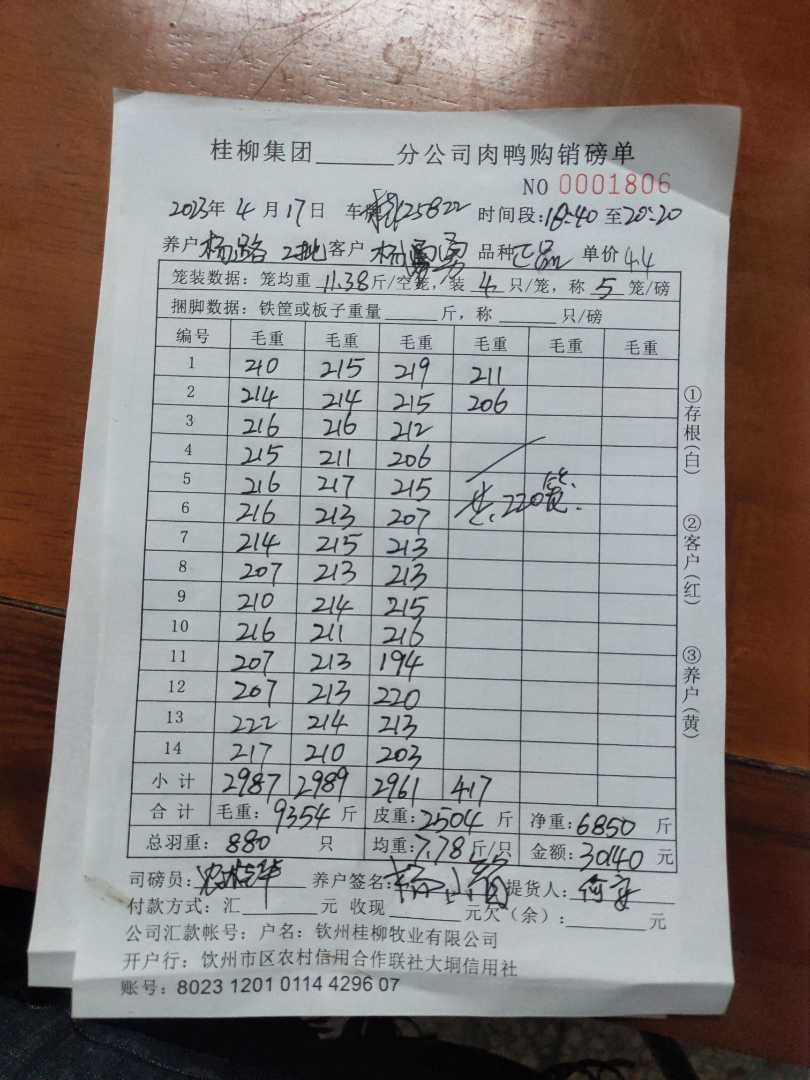 桂柳集团______分公司肉鸭购销磅单
NO 0001806
2023年4月17日 车牌 桂 25822 时间段:18:40至20:20
养户 杨路 2批 客户 杨勇 品种 正品 单价 4.4
笼装数据:笼均重 11.38 斤/空笼,装 4 只/笼,称 5 笼/磅
捆脚数据:铁筐或板子重量______斤,称______只/磅
编号 毛重 毛重 毛重 毛重 毛重 毛重
1 210 215 219 211
2 214 214 215 206
3 216 216 212
4 215 211 206
5 216 217 215
6 216 213 207 共:220笼.
7 214 215 213
8 207 213 213
9 210 214 215
10 216 211 216
11 207 213 194
12 207 213 220
13 222 214 213
14 217 210 203
小计 2987 2989 2961 417
合计 毛重:9354斤 皮重:2504斤 净重:6850斤
总羽重:880只 均重:7.78斤/只 金额:30140元
司磅员: 养户签名: 提货人:
付款方式:汇______元 收现______元欠(余):______元
公司汇款帐号:户名:钦州桂柳牧业有限公司
开户行:饮州市区农村信用合作联社大垌信用社
账号:8023 1201 0114 4296 07
①存根(白)
②客户(红)
③养户(黄)